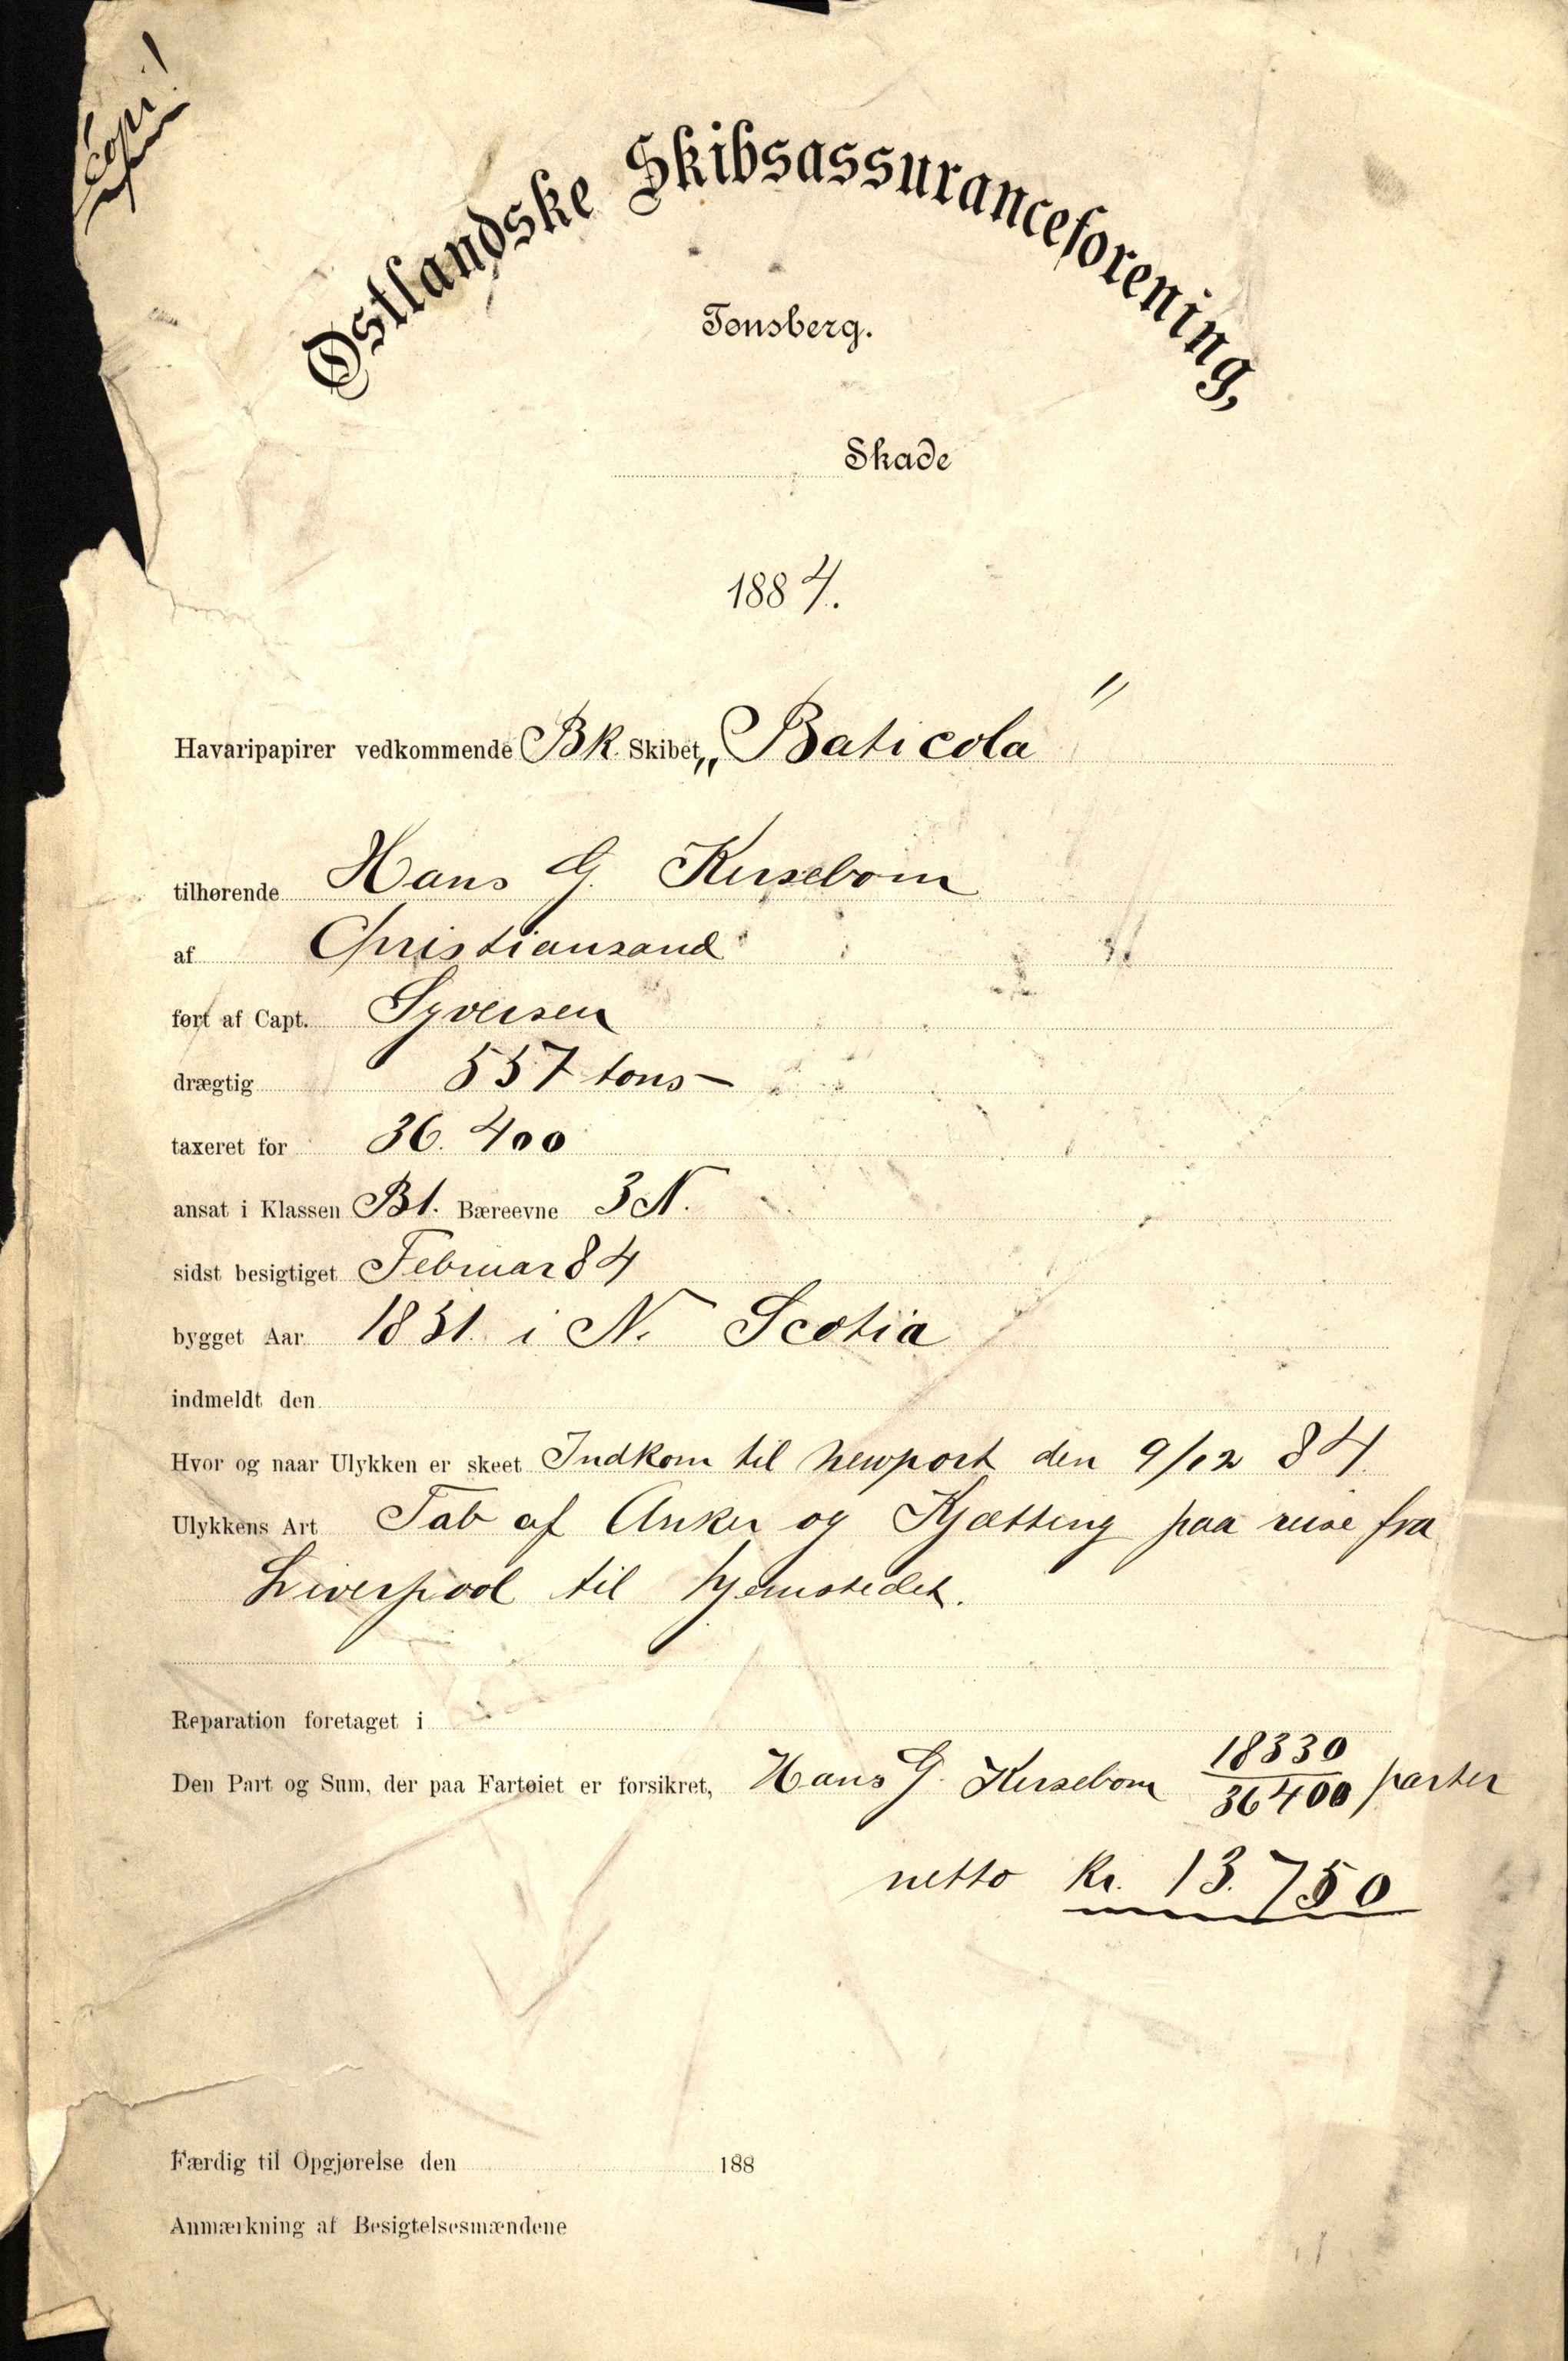 Copi!
Østlandske Skibsassuranceforening,
Tønsberg.
Skade
1884.
Havaripapirer vedkommende Bk. Skibet „Baticola"
tilhørende Hans G. Kirsebom
af Christiansand
ført af Capt. Syversen
drægtig 557 tons –
taxeret for 36.400
ansat i Klassen B1. Bæreevne 3 N.
sidst besigtiget Februar 84
bygget Aar 1831. i N. Scotia
indmeldt den
Hvor og naar Ulykken er skeet Indkom til Newport den 9/12 84.
Ulykkens Art Tab af Anker og Kjætting paa reise fra
Liverpool til hjemstedet.
Reparation foretaget i
Den Part og Sum, der paa Fartøiet er forsikret, Hans G. Kirsebom 18330/36400 parter
netto Kr. 13.750
Færdig til Opgjørelse den 188
Anmærkning af Besigtelsesmændene